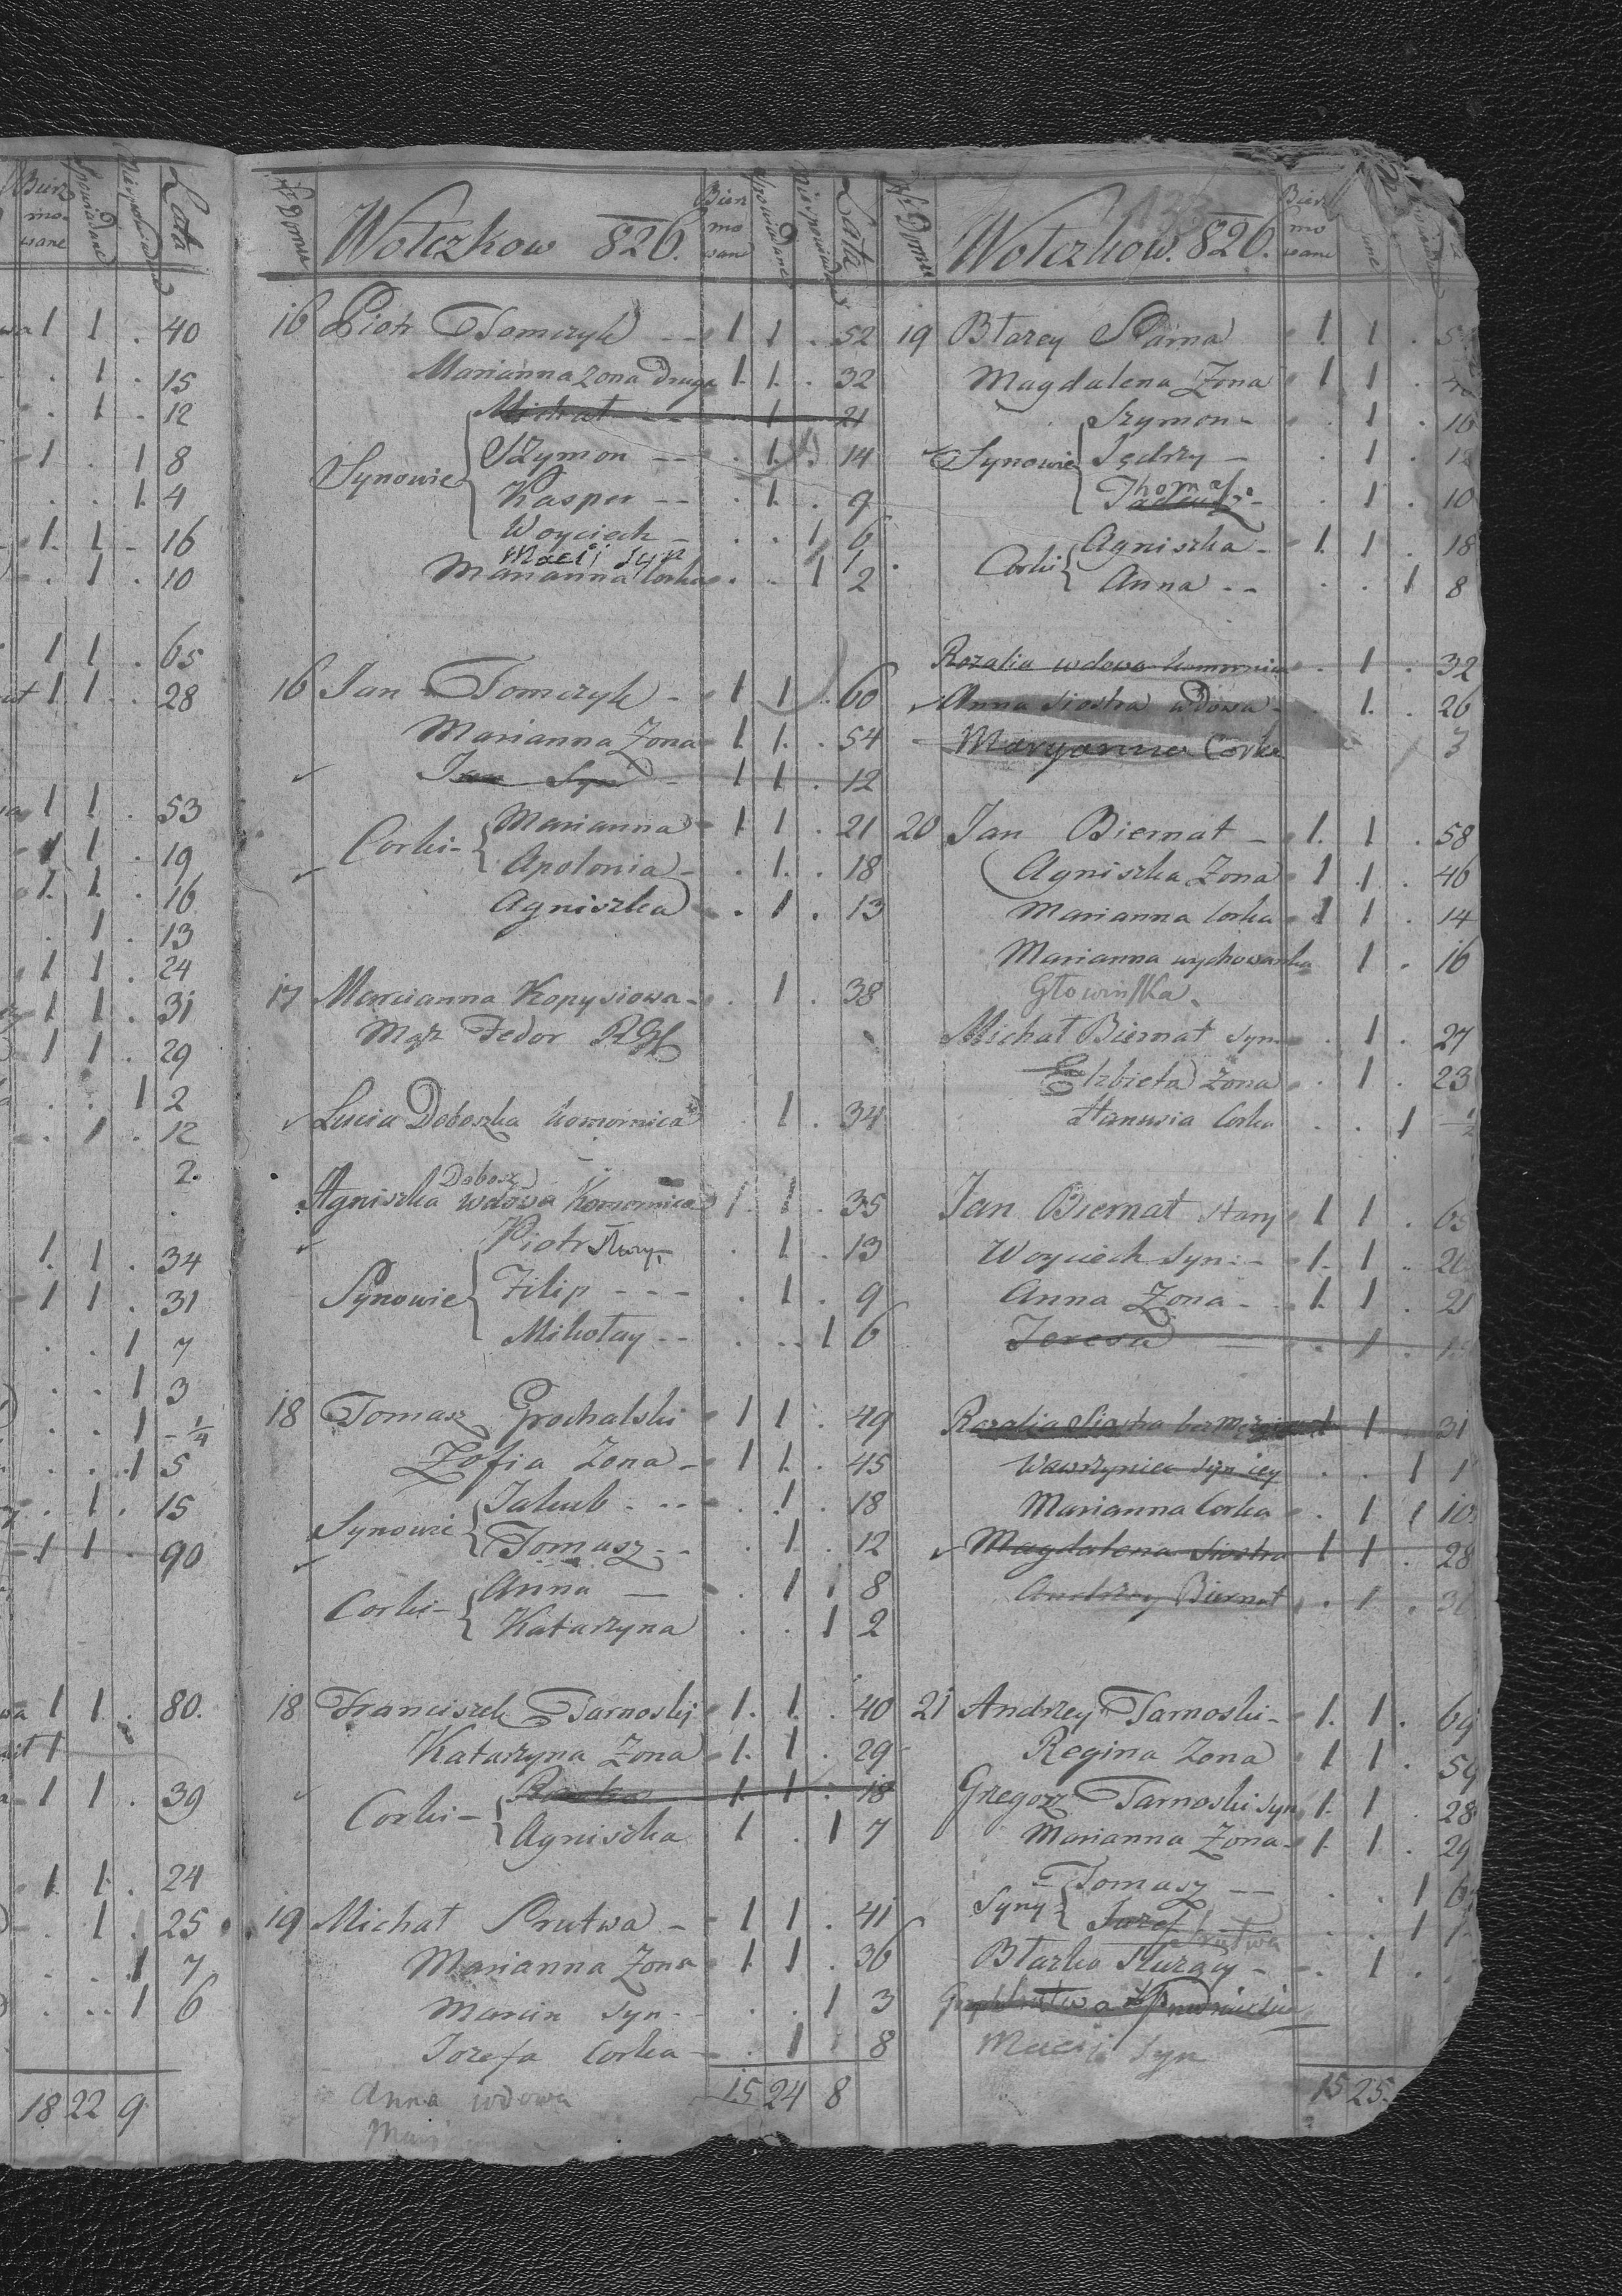 Bierz mo- wane Spowiadane Niespowiadane Lata
1 1 . 40
. 1 . 15
. 1 . 12
1 . 1 8
. . 1 4
1 1 - 16
. 1 . 10
1 1 . 65
1 1 . 28
1 1 . 53
1 1 . 19
1 1 . 16
. 1 . 13
1 1 . 24
1 1 . 31
1 1 . 29
. . 1 2
. 1 . 12
2.
1 1 . 34
1 1 . 31
. . 1 7
. . 1 3
. . 1 1/4
. . 1 5
. 1 . 15
1 1 . 90
1 1 . 80.
1
1 1 . 39
1 1 . 24
. 1 1 25
. . 1 7
. . 1 6
18 22 9
N Domu Wołczkow 826. Bierz mo wane Spowiadane Niespowiadane Lata
16 Piotr Tomczyk -- 1 1 . 52
Marianna zona Druga 1 1 . 32
Michał -- 1 21
Synowie Szymon -- . 1 . 14
Kasper -- . 1 . 9
Woyciech - . . 1 6
Macij Syn 1
Marianna Corka . . 1 2
16 Jan Tomczyk - 1 1 . 60
Marianna Zona 1 1 . 54
Jan Syn - 1 1 . 12
Corki - Marianna 1 1 . 21
Apolonia - . 1 . 18
Agniszka . 1 . 13
17 Marcianna Kopysiowa - . 1 . 38
Mąż Fedor RGł
Lucia Doboszka komornica . 1 . 34
Dobosz
Agniszka wdowa Komornica 1 1 . 35
Piotr Stary . 1 . 13
Synowie Filip --- . 1 . 9
Mikołay -- . .. 1 6
18 Tomasz Grochalski 1 1 . 49
Zofia Zona - 1 1 . 45
Synowie Jakub . -- . 1 . 18
Tomasz -- . 1 . 12
Corki - Anna — . 1 1 8
Katarzyna . . 1 2
18 Franciszek Tarnoskij 1 1 . 40
Katarzyna Zona 1 1 . 29
1 1 . 18
Corki - Agniszka 1 . 1 7
19 Michał Prutwa - 1 1 . 41
Marianna Zona 1 1 . 36
Marcin Syn - . . 1 3
Jozefa Corka - . 1 1 8
Anna wdowa 15 24 8
N Domu Wołczkow. 826. Bierz mo wane
19 Błazey Sarna 1 1 .
Magdalena Zona 1 1 .
Szymon - . 1 . 16
Synowie Jędrzy - . 1 . 12
Thomasz
Tadeusz - . 1 . 10
Corki Agniszka - 1 1 . 18
Anna -- . . 1 8
Rozalia wdowa komornica . 1 . 32
Anna siostra wdowa - . 1 . 26
Maryanna Corka 3
20 Jan Biernat - 1 1 . 58
Agniszka Zona 1 1 . 46
Marianna Corka 1 1 . 14
Marianna wychowanka 1 . 16
Głowinska.
Michał Biernat Syn . 1 . 27
Elzbieta Zona . 1 . 23
Hanusia Corka . . 1 1/2
Jan Biernat Stary 1 1 . 65
Woyciech Syn - 1 1 .
Anna Zona - 1 1 . 21
Teresa — . 1 .
Rozalia Siostra 1 1 31
Wawrzyniec Syn iey . . 1 1
Marianna Corka . 1 1 10
Magdalena Siostra 1 1 . 28
Andrzey Biernat . 1 .
21 Andrzey Tarnoski - 1 1 . 69
Regina Zona 1 1 . 59
Grzegorz Tarnoski Syn 1 1 . 28
Marianna Zona - 1 1 . 29
Syny Tomasz -- . . 1 6
Jozef . . 1
Prutwa
Błazko - . 1 .
Maciij Syn
15 25.